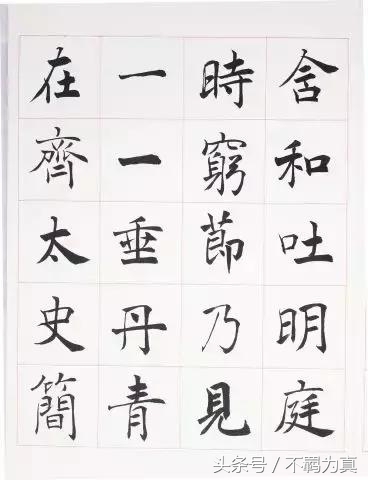 含和吐明庭
時窮節乃見
一一垂丹青
在齊太史簡
头条号/不羁为真